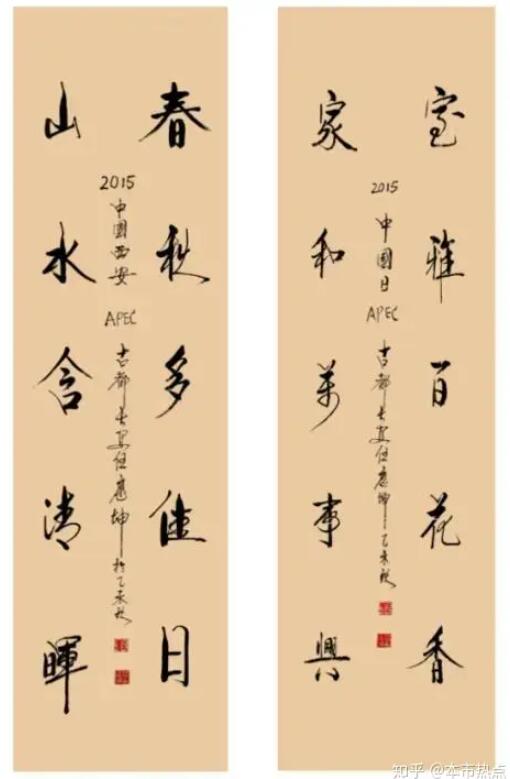 室雅百花香
2015 中國日 APEC 古都長安任坤 乙未秋
家和萬事興
春秋多佳日
2015 中國西安 APEC 古都長安任坤 於乙未秋
山水含清暉
知乎 @本市热点